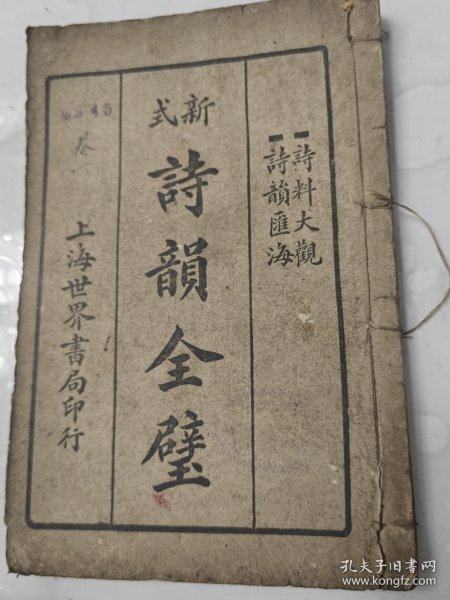 詩料大觀
詩韻匯海
新式
詩韻全璧
卷一
上海世界書局印行
孔夫子旧书网
www.kongfz.com